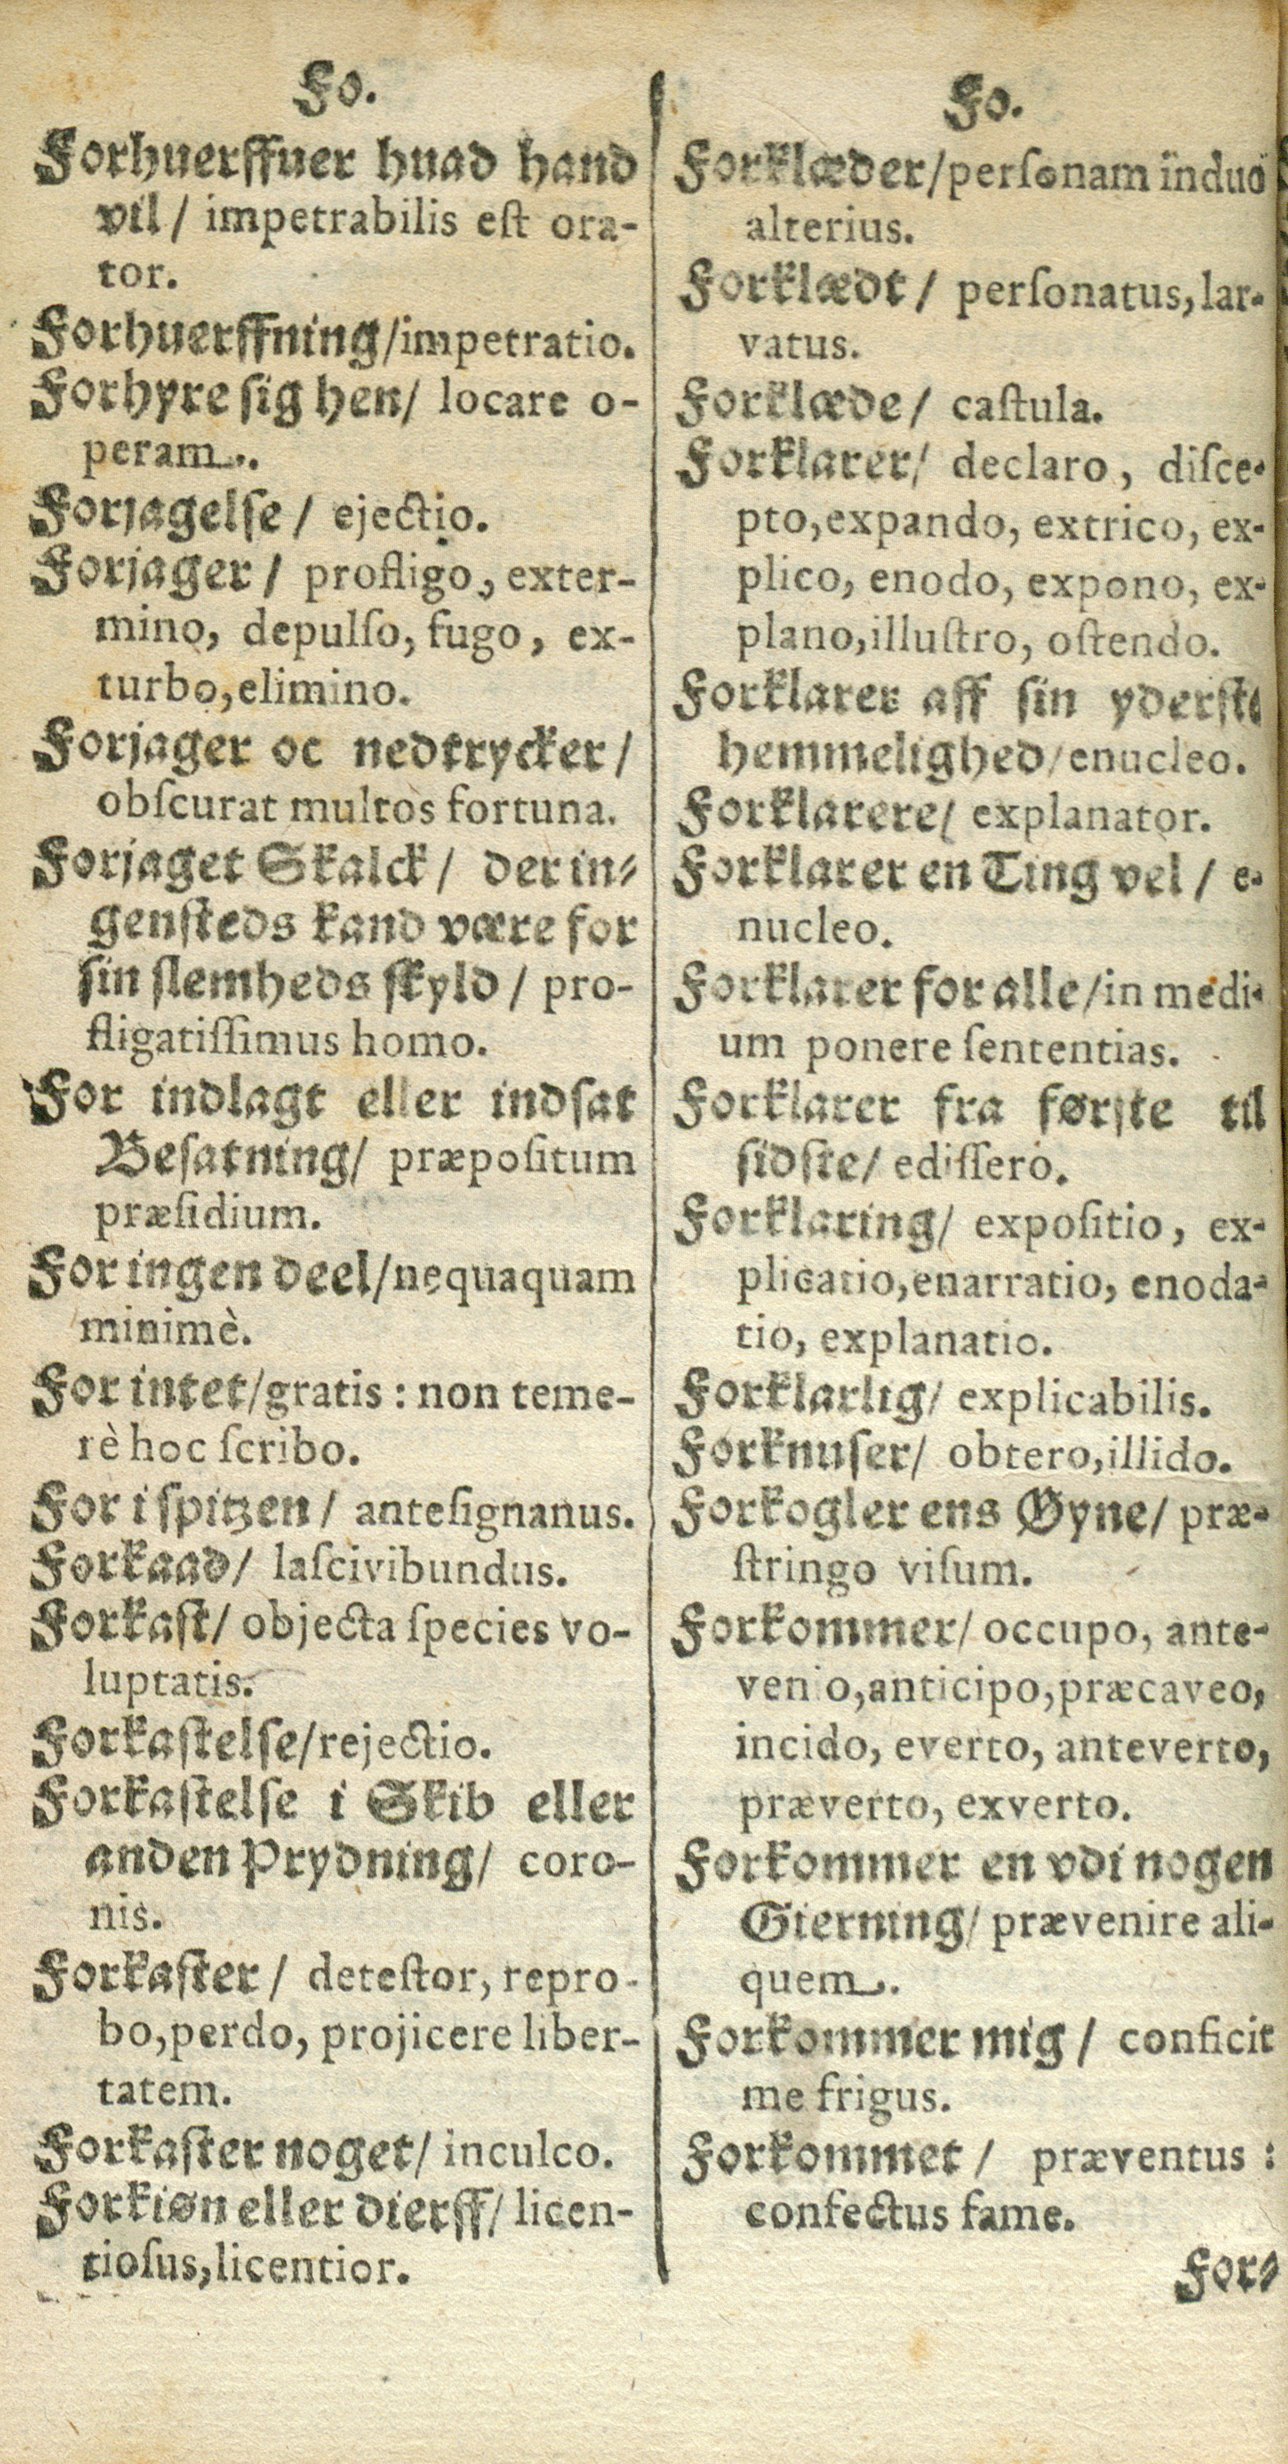 Fo.
Forhuerffuer huad hand
vil / impetrabilis eſt ora-
tor.
Forhuerffning/impetratio.
Forhyre ſig hen/ locare o-
peram.
Forjagelſe / ejectio.
Forjager / profligo, exter-
mino, depulſo, fugo, ex-
turbo,elimino.
Forjager oc nedtrycker /
obſcurat multos fortuna.
Forjaget Skalck / der in-
genſteds kand være for
ſin ſlemheds ſkyld / pro-
fligatiſſimus homo.
For indlagt eller indſat
Beſatning/ præpoſitum
præſidium.
For ingen deel/nequaquam
minimè.
For intet/gratis : non teme-
rè hoc ſcribo.
For i ſpitzen / anteſignanus.
Forkaad/ laſcivibundus.
Forkaſt/ objecta ſpecies vo-
luptatis.
Forkaſtelſe/rejectio.
Forkaſtelſe i Skib eller
anden Prydning/ coro-
nis.
Forkaſter / deteſtor, repro-
bo,perdo, projicere liber-
tatem.
Forkaſter noget/ inculco.
Forkiøn eller dierff/ licen-
tioſus,licentior.
Fo.
Forklæder/perſonam induo
alterius.
Forklædt / perſonatus, lar-
vatus.
Forklæde/ caſtula.
Forklarer/ declaro, diſce-
pto,expando, extrico, ex-
plico, enodo, expono, ex-
plano,illuſtro, oſtendo.
Forklarer aff ſin yderſte
hemmelighed/enucleo.
Forklarere/ explanator.
Forklarer en Ting vel / e-
nucleo.
Forklarer for alle/in medi-
um ponere ſententias.
Forklarer fra førſte til
ſidſte/ ediſſero.
Forklaring/ expoſitio, ex-
plicatio,enarratio, enoda-
tio, explanatio.
Forklarlig/ explicabilis.
Forknuſer/ obtero,illido.
Forkogler ens Øyne/ præ-
ſtringo viſum.
Forkommer/ occupo, ante-
venio,anticipo,præcaveo,
incido, everto, anteverto,
præverto, exverto.
Forkommer en vdi nogen
Gierning/ prævenire ali-
quem.
Forkommer mig / conficit
me frigus.
Forkommet / præventus :
confectus fame.
For-